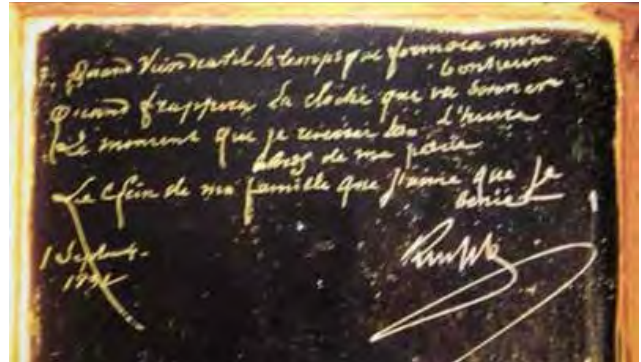 Quand Viendra til le temps que formera mon
bonheur
Quand frappera la cloche que va sonner
l'heure
Le moment que je reverrai les
de ma patrie
Le de ma famille que j'aime que je
benie
1 Septembre